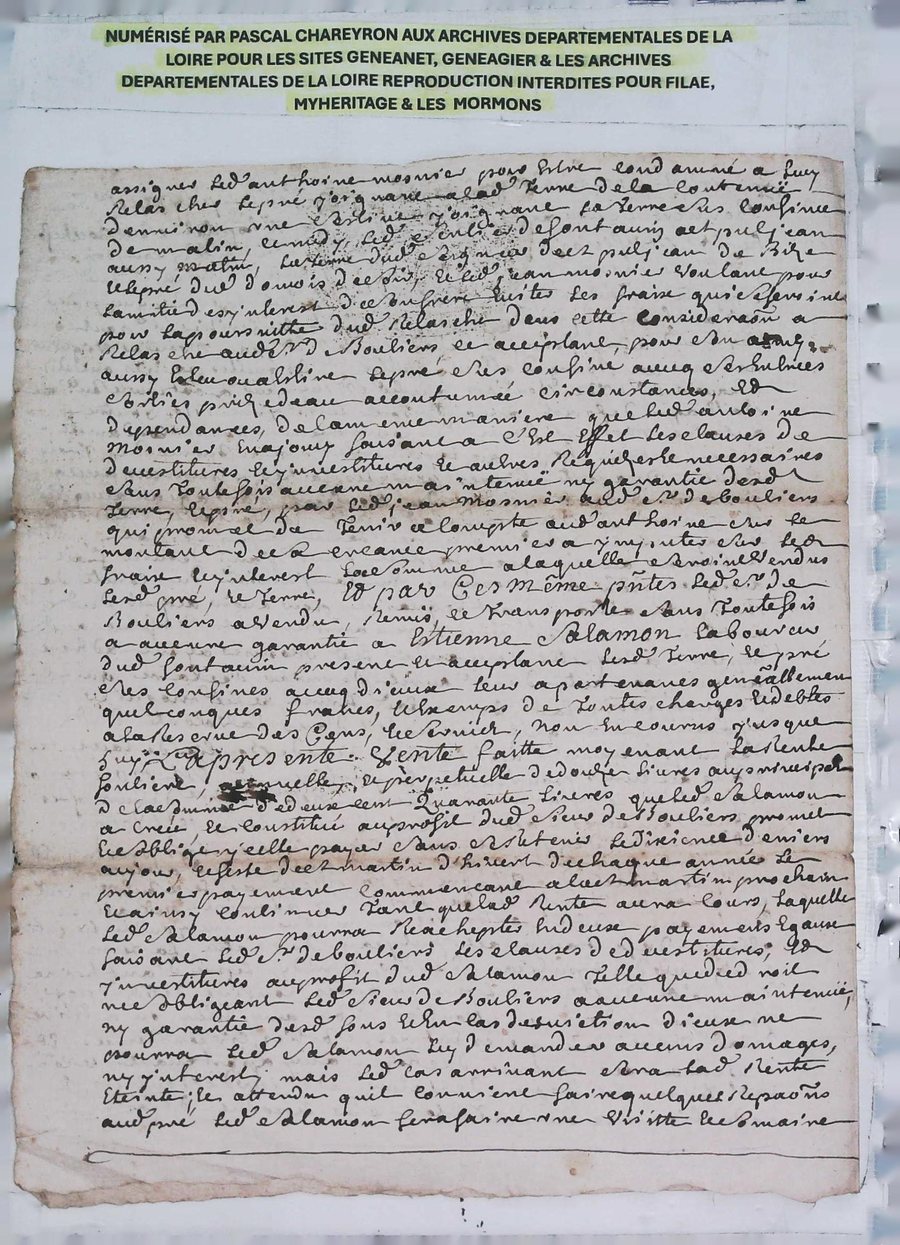 NUMÉRISÉ PAR PASCAL CHAREYRON AUX ARCHIVES DEPARTEMENTALES DE LA
LOIRE POUR LES SITES GENEANET, GENEAGIER & LES ARCHIVES
DEPARTEMENTALES DE LA LOIRE REPRODUCTION INTERDITES POUR FILAE,
MYHERITAGE & LES MORMONS
assigner led anthoine mosnier pour estre condamné a luy
relascher le pré joignant a lad terre de la contenue
denviron une joignant la terre ses confins
de matin,
aussy matin, la terre dud seigneur de
le pré dud et led jean mosnier voulant pour
lamitié et linterest de son frere eviter les frais qui se feroint
pour la poursuitte dud relasché dans cette consideraon a
relasché aud sr de Bouliers, ce acceptant, pour
aussy le pré ses confins avecq ses entrées
sorties prise deau accoutumée circonstances, et
dependances, de la meme maniere que led antoine
mosnier en a jouy faisant a cest effet les clauses de
devestitures et investitures et autres requises et necessaires
sans toutefois aucune maintenüe ny garantie desd
terre, et pré, par led jean mosnier aud sr de bouliers
qui promet de tenir a compte aud anthoine sur le
montant de sa creance premier a imputer sur les
frais et interest la somme a laquelle seroint vendus
lesd pré, et terre, et par ces même pntes led sr de
Bouliers a vendu, remis, et transporté sans toutefois
aucune garantie a Estienne Salamon laboureur
dud fontanin present et acceptant lesd terre, et pré
ses confins avecq dieux leur apartenances generallement
quelconques francs, et exemps de toutes charges et debtes
a la reserve des cens, et servier, non encourus jusque
huy, La presente vente faitte moyenant la rente
fonciere, annuelle, et perpetuelle de douze livres au principal
de la somme de deux cent quarante livres que led Salamon
a creé, et constitué au profit dud sieur de Bouliers promet
et oblige icelle payer sans retenir le dixieme deniers
au jour, et feste de st martin d'hivert de chaque année le
premier payement commencant a la st martin prochain
et ainsy continuer tant que lad rente aura cours, laquelle
led Salamon pourra rachepter en deux payements egaux
faisant led sr de bouliers les clauses de devestitures, et
investitures au profit dud Salamon telle que de droit
ne sobligeant led sieur de Bouliers a aucune maintenüe,
ny garantie desd fons et en cas deviction dieux ne
pourra led Salamon luy demander aucuns domages,
ny interests mais led cas arrivant sera lad rente
eteinte, et attendu quil convient faire quelques repaons
aud pré led Salamon fera faire une visitte et somaire